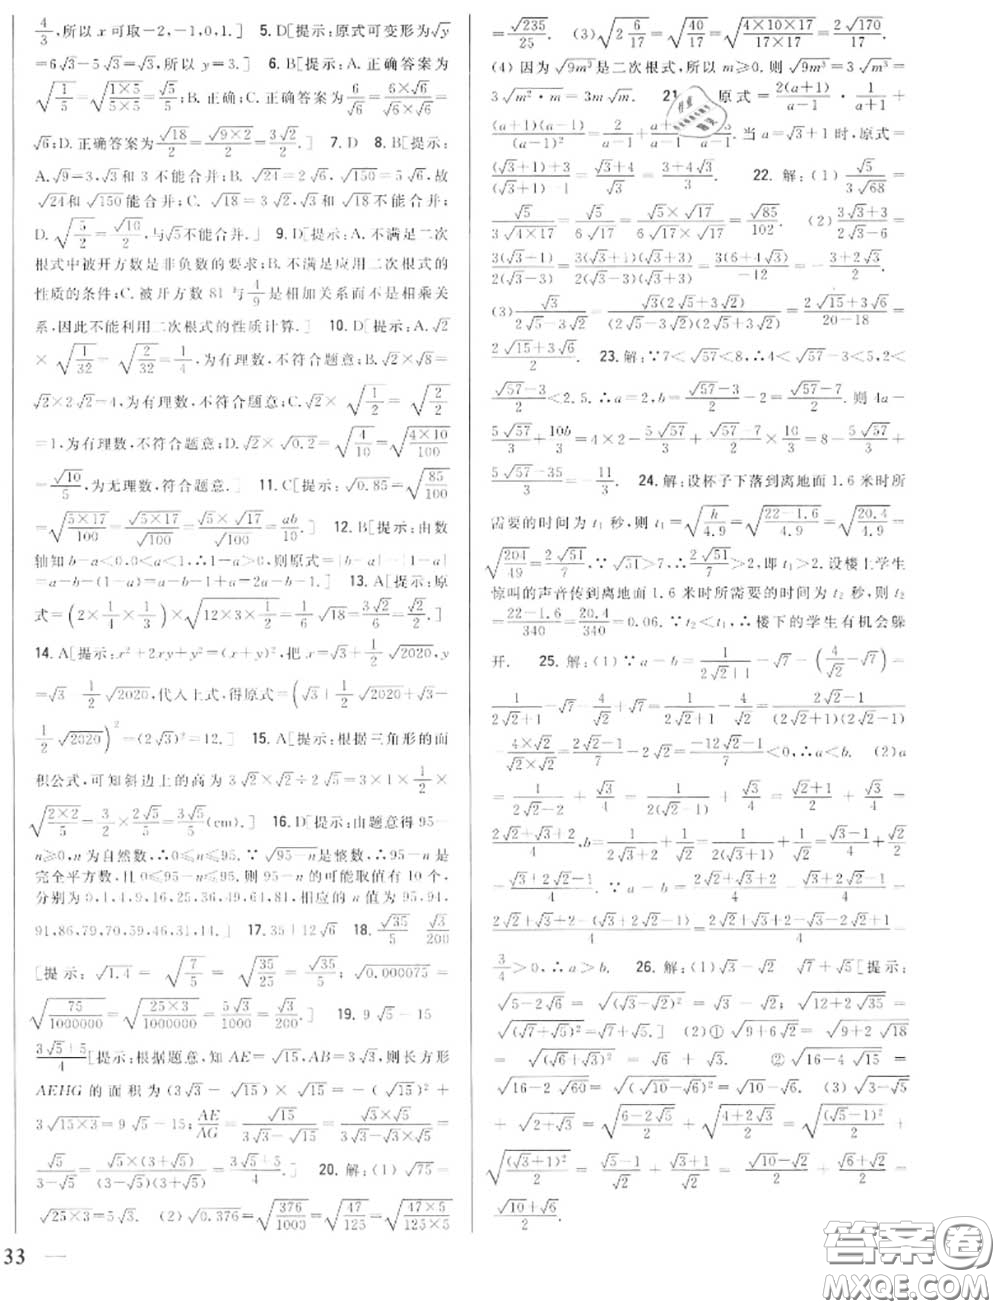 4/3,所以 x 可取-2,-1,0,1.] 5. D[提示:原式可变形为√y
=6√3-5√3=√3,所以 y=3.] 6. B[提示:A. 正确答案为
√(1/5)=√((1×5)/(5×5))=√5/5;B. 正确;C. 正确答案为6/√6=(6×√6)/(√6×√6)=
√6;D. 正确答案为√18/2=√(9×2)/2=3√2/2.] 7. D 8. B[提示:
A. √9=3,√3和 3 不能合并;B. √24=2√6, √150=5√6,故
√24和√150能合并;C. √18=3√2,√3和√18不能合并;
D. √(5/2)=√10/2,与√5不能合并.] 9. D[提示:A. 不满足二次
根式中被开方数是非负数的要求;B. 不满足应用二次根式的
性质的条件;C. 被开方数 81 与1/9是相加关系而不是相乘关
系,因此不能利用二次根式的性质计算.] 10. D[提示:A. √2
×√(1/32)=√(2/32)=1/4,为有理数,不符合题意;B. √2×√8=
√2×2√2=4,为有理数,不符合题意;C. √2×√(1/2)=√(2/2)
=1,为有理数,不符合题意;D. √2×√0.2=√(4/10)=√((4×10)/100)=
√10/5,为无理数,符合题意.] 11. C[提示:√0.85=√(85/100)
=√((5×17)/100)=√(5×17)/√100=(√5×√17)/100=ab/10.] 12. B[提示:由数
轴知 b-a<0,0<a<1,∴1-a>0,则原式=|b-a|-|1-a|=
a-b-(1-a)=a-b-1+a=2a-b-1.] 13. A[提示:原
式=(2×1/4×1/3)×√(12×3×1/2)=1/6√18=1/6×3√2=√2/2.]
14. A[提示:x²+2xy+y²=(x+y)²,把 x=√3+1/2√2020,y
=√3-1/2√2020,代入上式,得原式=(√3+1/2√2020+√3-
1/2√2020)²=(2√3)²=12.] 15. A[提示:根据三角形的面
积公式,可知斜边上的高为 3√2×√2÷2√5=3×1×1/2×
√((2×2)/5)=3/2×2√5/5=3√5/5(cm).] 16. D[提示:由题意得 95-
n≥0,n 为自然数,∴0≤n≤95.∵√(95-n)是整数,∴95-n 是
完全平方数,且 0≤95-n≤95. 则 95-n 的可能取值有 10 个,
分别为 0,1,4,9,16,25,36,49,64,81,相应的 n 值为 95,94,
91,86,79,70,59,46,31,14.] 17. 35+12√6 18. √35/5 √3/200
[提示:√1.4=√(7/5)=√(35/25)=√35/5;√0.000075=
√(75/1000000)=√((25×3)/1000000)=5√3/1000=√3/200.] 19. 9√5-15
(3√5+5)/4[提示:根据题意,知 AE=√15,AB=3√3,则长方形
AEHG 的面积为(3√3-√15)×√15=-(√15)²+
3√(15×3)=9√5-15;AE/AG=√15/(3√3-√15)=(√3×√5)/(3√3-√3×√5)=
√5/(3-√5)=√5×(3+√5)/((3-√5)×(3+√5))=(3√5+5)/4.] 20. 解:(1)√75=
√(25×3)=5√3. (2)√0.376=√(376/1000)=√(47/125)=√((47×5)/(125×5))
=√235/25. (3)√(2 6/17)=√(40/17)=√((4×10×17)/(17×17))=2√170/17.
(4)因为√(9m³)是二次根式,所以 m≥0. 则√(9m³)=3√(m³)=
3√(m²·m)=3m√m. 21. 原式=2(a+1)/(a-1)·1/(a+1)+
(a+1)(a-1)/(a-1)²=2/(a-1)+(a+1)/(a-1)=. 当 a=√3+1 时,原式=
((√3+1)+3)/((√3+1)-1)=(√3+4)/√3=(3+4√3)/3. 22. 解:(1)√5/(3√68)=
√5/(3√(4×17))=√5/(6√17)=(√5×√17)/(6√17×√17)=√85/102. (2)(3√3+3)/(2√3-6)=
3(√3+1)/(2(√3-3))=3(√3+1)(√3+3)/(2(√3-3)(√3+3))=3(6+4√3)/(-12)=-(3+2√3)/2.
(3)√3/(2√5-3√2)=√3(2√5+3√2)/((2√5-3√2)(2√5+3√2))=(2√15+3√6)/(20-18)=
(2√15+3√6)/2. 23. 解:∵7<√57<8,∴4<√57-3<5,2<
(√57-3)/2<2.5.∴a=2,b=(√57-3)/2-2=(√57-7)/2. 则 4a-
5√57/3+10b/3=4×2-5√57/3+(√57-7)/2×10/3=8-5√57/3+
(5√57-35)/3=-11/3. 24. 解:设杯子下落到离地面 1.6 米时所
需要的时间为 t₁ 秒,则 t₁=√(h/4.9)=√((22-1.6)/4.9)=√(20.4/4.9)=
√(204/49)=2√51/7.∵√51>7,∴2√51/7>2,即 t₁>2. 设楼上学生
惊叫的声音传到离地面 1.6 米时所需要的时间为 t₂ 秒,则 t₂
=(22-1.6)/340=20.4/340=0.06.∵t₂<t₁,∴楼下的学生有机会躲
开. 25. 解:(1)∵a-b=1/(2√2+1)-√7-(4/√2-√7)=
1/(2√2+1)-√7-4/√2+√7=1/(2√2+1)-4/√2=(2√2-1)/((2√2+1)(2√2-1))
-(4×√2)/(√2×√2)=(2√2-1)/7-2√2=(-12√2-1)/7<0,∴a<b. (2)a
=1/(2√2-2)+√3/4=1/(2(√2-1))+√3/4=(√2+1)/2+√3/4=
(2√2+√3+2)/4,b=1/(2√3+2)+1/√2=1/(2(√3+1))+1/√2=(√3-1)/4+√2/2
=(√3+2√2-1)/4.∵a-b=(2√2+√3+2)/4-(√3+2√2-1)/4=
(2√2+√3+2-(√3+2√2-1))/4=(2√2+√3+2-√3-2√2+1)/4=
3/4>0,∴a>b. 26. 解:(1)√3-√2 √7+√5[提示:
√(5-2√6)=√((√3-√2)²)=√3-√2,√(12+2√35)=
√((√7+√5)²)=√7+√5.] (2)①√(9+6√2)=√(9+2√18)
=√((√6+√3)²)=√6+√3. ②√(16-4√15)=
√(16-2√60)=√((√10-√6)²)=√10-√6. (3)√(3-√5)
+√(2+√3)=√((6-2√5)/2)+√((4+2√3)/2)=√((√5-1)²/2)+
√((√3+1)²/2)=(√5-1)/√2+(√3+1)/√2=(√10-√2)/2+(√6+√2)/2=
(√10+√6)/2.
33
答案圈
MXQE.COM